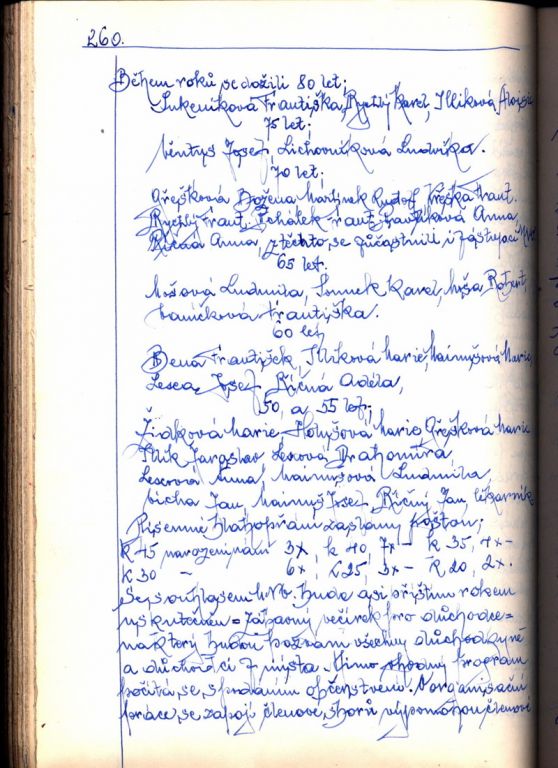 260.
Během roků se dožili 80 let;
Františka, Rychlý Karel, Illiková Alojsie
75 let;
Josef, Lichovníková Ludvika.
70 let;
Grešková Božena Martinek Rudolf Frant.
Rychlý Frant. Řehálek Frant. Anna,
Říčná Anna, z těchto se zůčastnili i zástupci
65 let.
Ludmila, Karel, Robert,
Františka.
60 let,
Bena František, Illiková Marie, Maimyšová Marie,
Lesca, Josef Říčná Adéla,
50, a 55 let;
Židková Marie Holyšová Marie Grešková Marie
Illík Jaroslav Lescová Drahomíra,
Lescová Anna, Maimyšová Ludmila
Jan, Maimyš Josef, Říčný Jan,
Písemné blahopřání zaslány poštou;
k 45 narozeninám 3x, k 40, 7x - k 35, 4x -
k 30 - 6x, k 25, 3x - k 20, 2x.
Se souhlasem bude asi příštím rokem
uskutečněn = Zábavný večírek pro důchodce =
na který budou pozvání všechny důchodkyně
a důchodci z místa. Mimo vhodný program
počítá, se s podáním občerstvení. V organisační
práce, se zapojí členové, sborů výpomohou členové